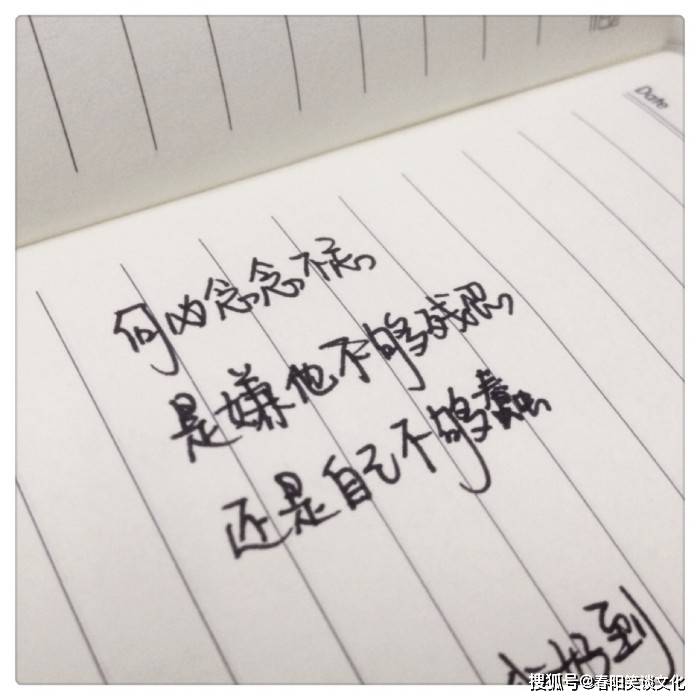 Date
何必念念不忘
是嫌他不够残忍
还是自己不够蠢
好到
搜狐号@春阳笑谈文化